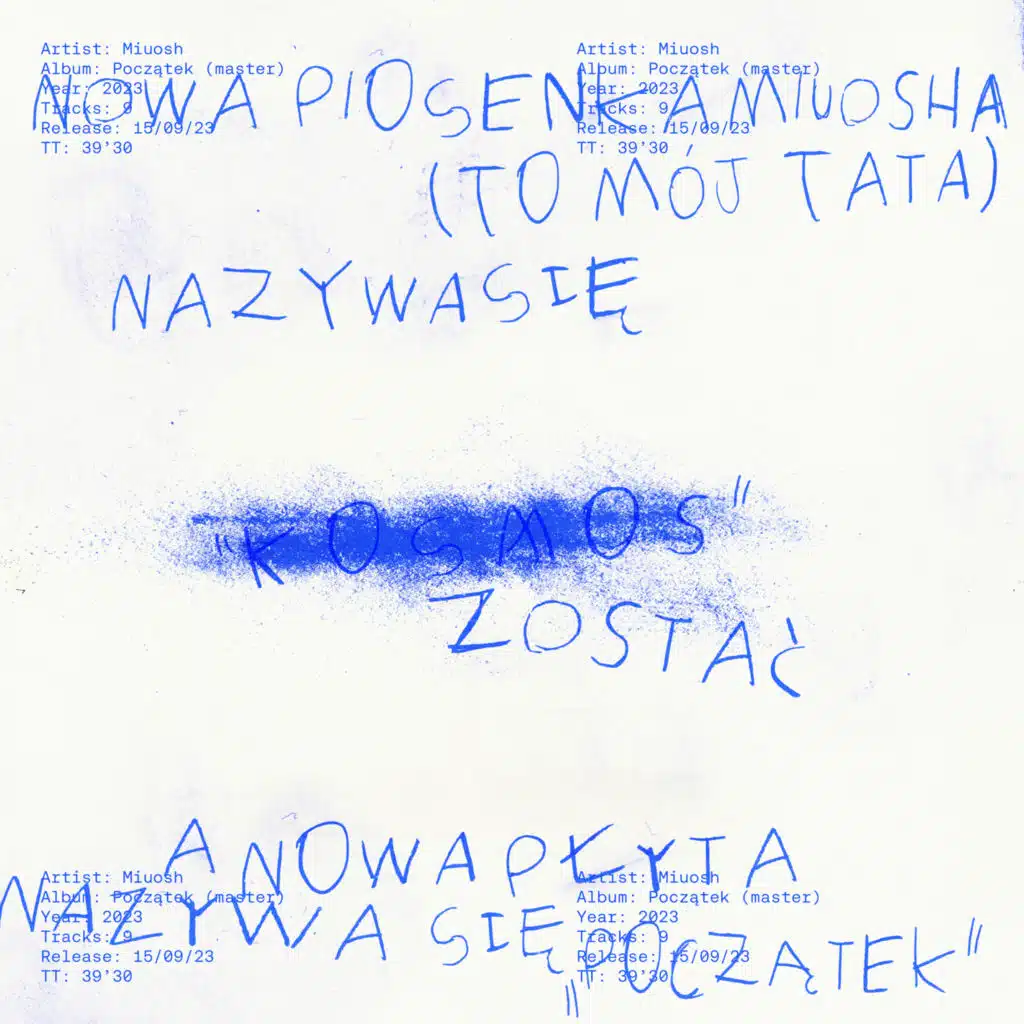 Artist: Miuosh
Album: Początek (master)
Year: 2023
Tracks: 9
Release: 15/09/23
TT: 39'30
Artist: Miuosh
Album: Początek (master)
Year: 2023
Tracks: 9
Release: 15/09/23
TT: 39'30
NOWA PIOSENKA MIUOSHA
(TO MÓJ TATA)
NAZYWA SIĘ
"KOSMOS"
ZOSTAĆ
A NOWA PŁYTA
NAZYWA SIĘ "POCZĄTEK"
Artist: Miuosh
Album: Początek (master)
Year: 2023
Tracks: 9
Release: 15/09/23
TT: 39'30
Artist: Miuosh
Album: Początek (master)
Year: 2023
Tracks: 9
Release: 15/09/23
TT: 39'30